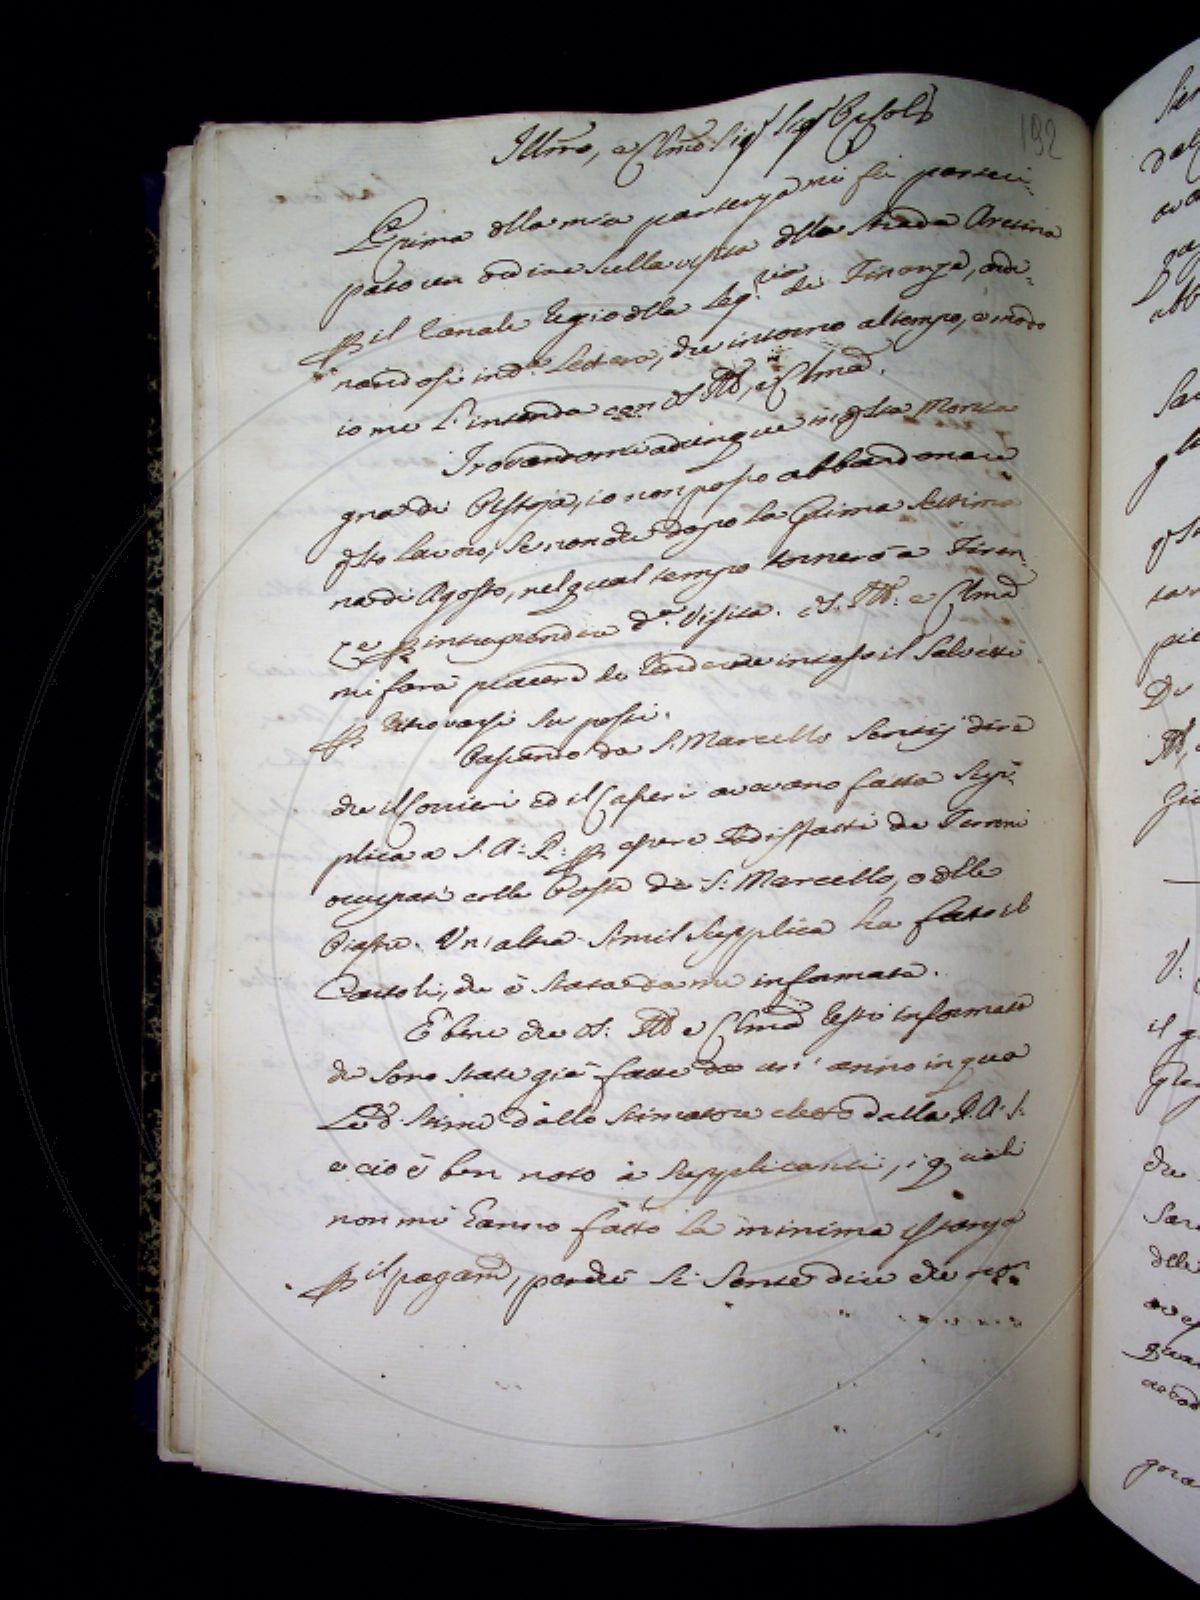 192
Illmo, e Clmo Sigr Sigr
Prima della mia partenza mi fu parteci-
pato un ordine sulla visita della strada Aretina
p il Canale regio della Segria di Finanze, ordi-
nandosi in da Lettera, che intorno al tempo, e modo
io me l'intenda con VS. Illma, e Clma.
Trovandomi adunque in qsta Monta
gna di Pistoja, io non posso abbandonare
qsto lavoro, se non che dopo la prima settima
na di Agosto, nel qual tempo tornerò a Firen-
ze p intraprender da Visita. VS. Illma e Clma
mi farà piacere di rendere inteso il Salvetti
p ritrovarsi su posti.
Passando da S. Marcello sentij dire
che il Convieri ed il Caferi avevano fatta Sup-
plica a S. A. R. p essere sodisfatti de Terreni
occupati colle Poste di S. Marcello, e delle
Piastre. Un' altra simil supplica ha fatto il
Bartoli, che è stata da me informata.
È bene che VS. Illma e Clma resti informata
che sono state già fatte da un' anno in qua
Le de stime dallo stimatore eletto dalla R. A. S.
e ciò è ben noto a Supplicanti, i quali
non mi hanno fatto la minima istanza
p il pagamto, perchè si sente dire che non